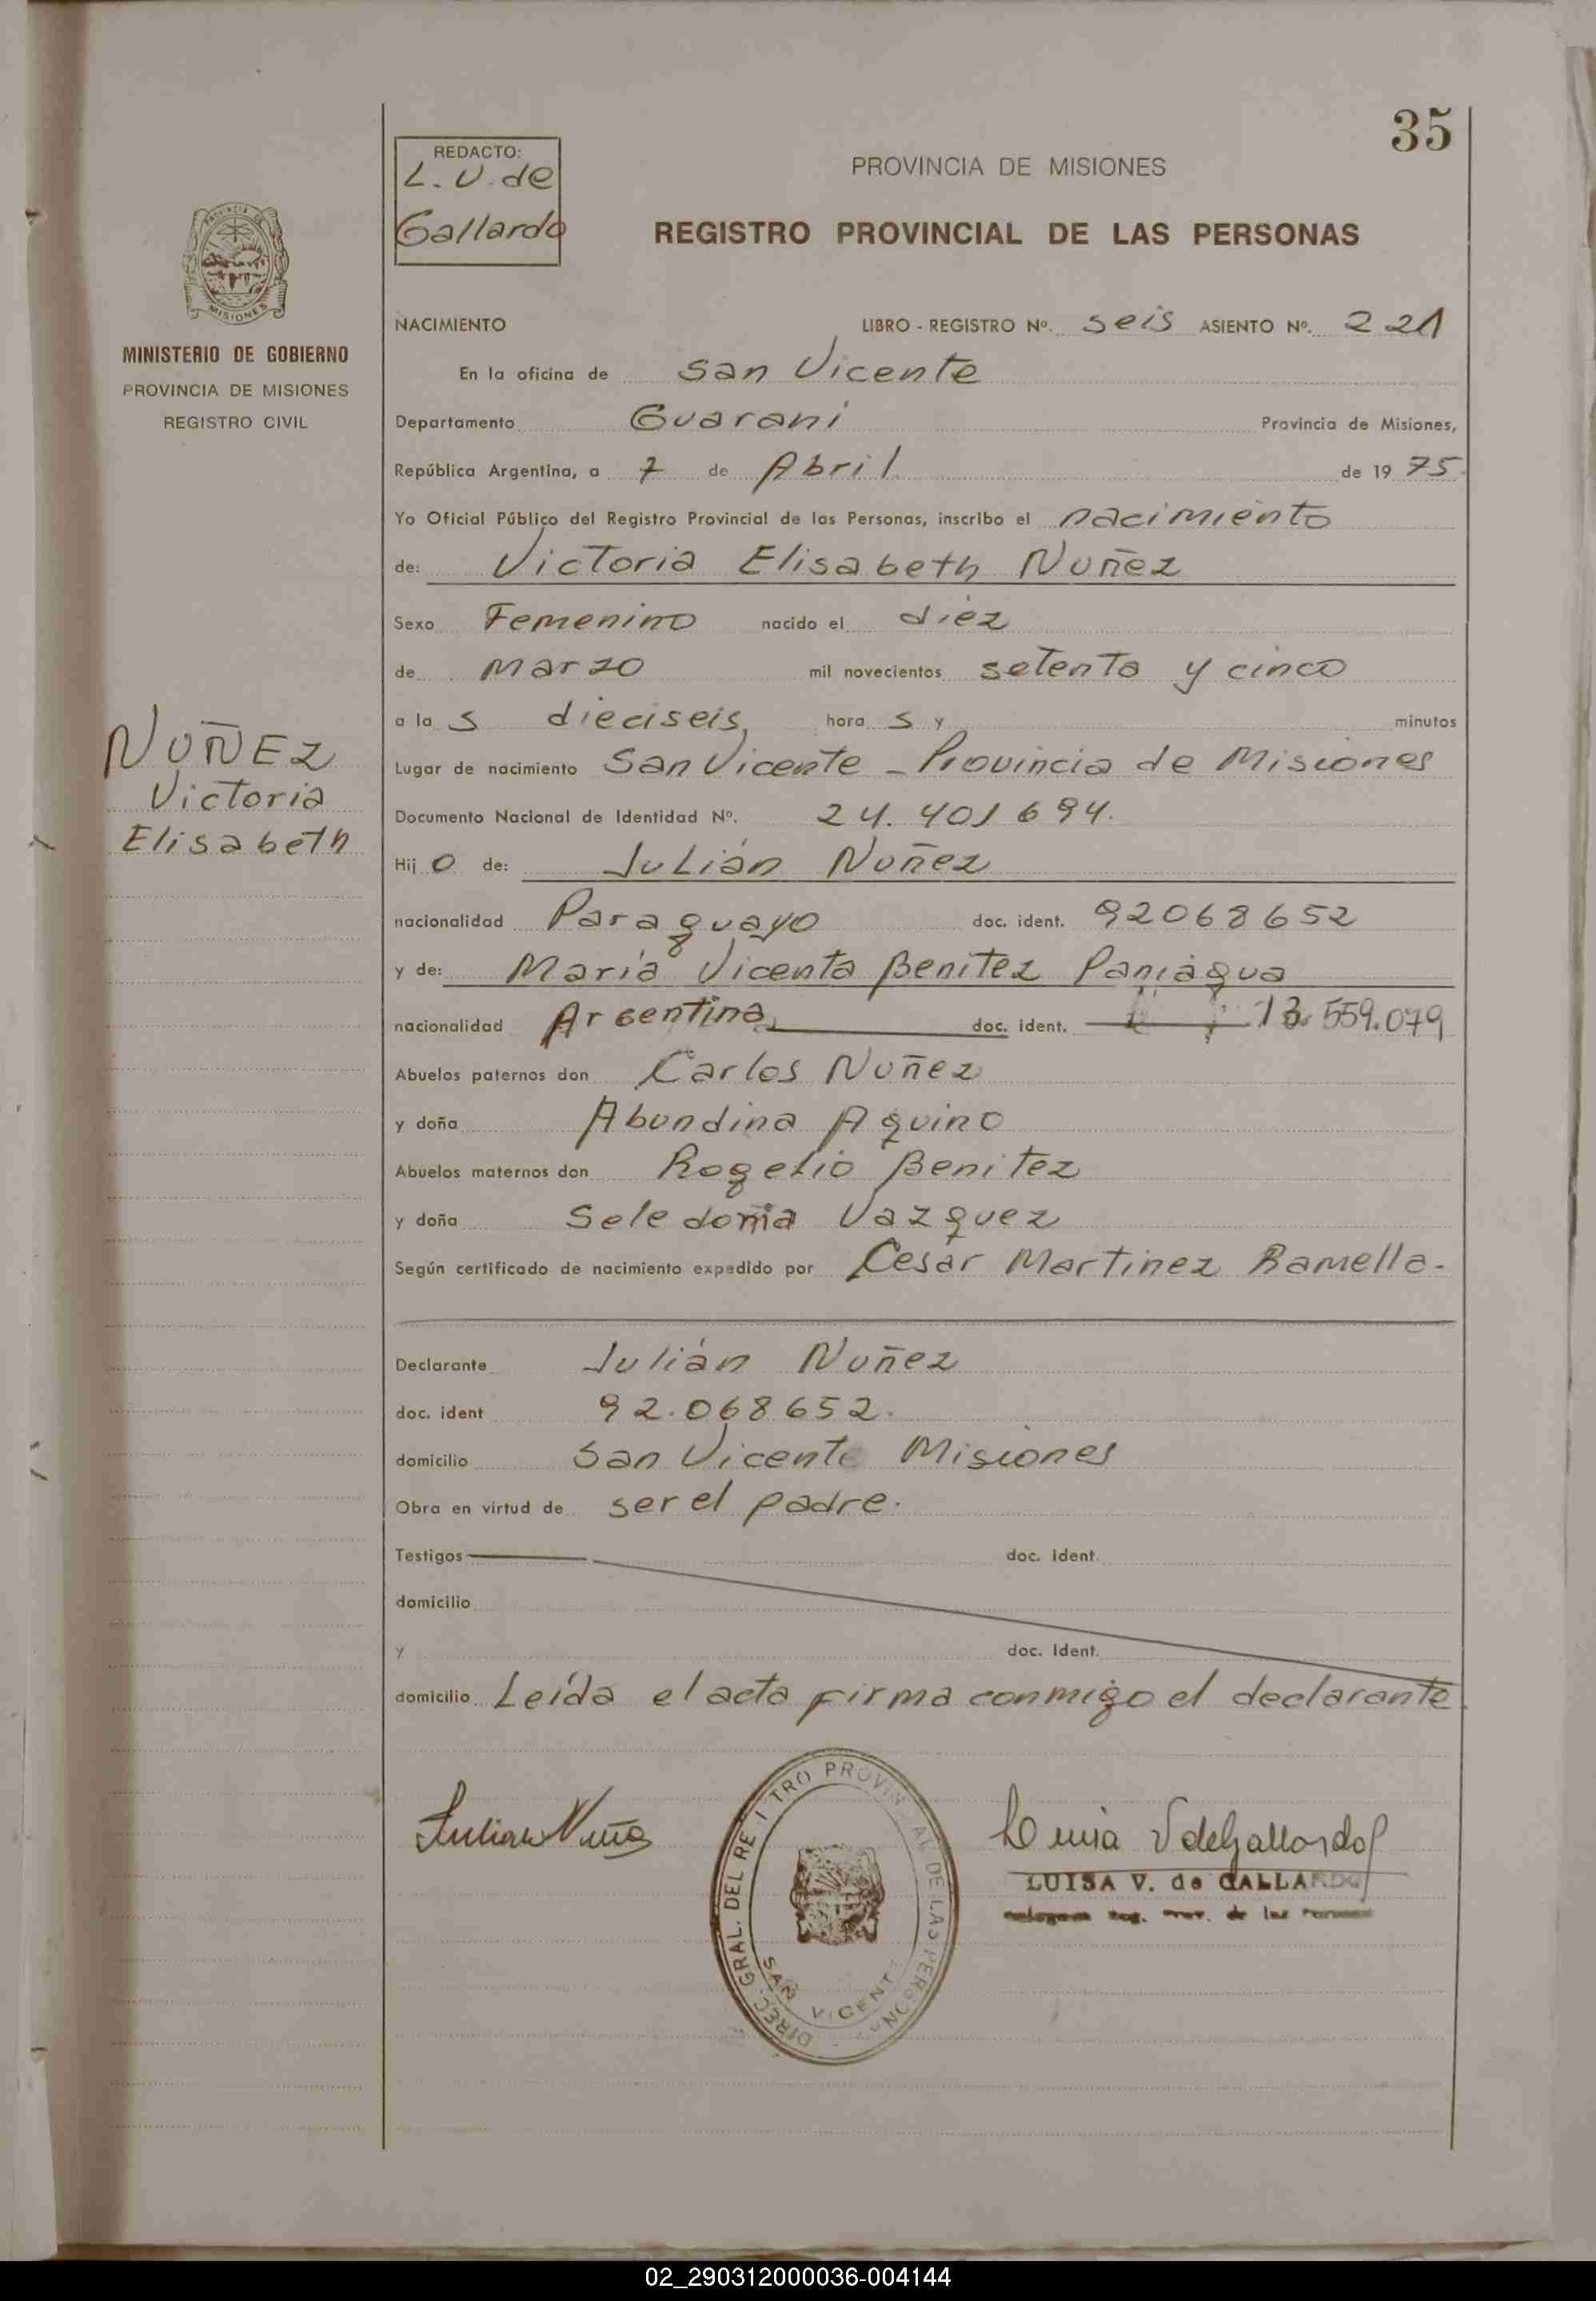 35
REDACTO:
L. V. de
Gallardo
PROVINCIA DE MISIONES
REGISTRO PROVINCIAL DE LAS PERSONAS
MISIONES
MINISTERIO DE GOBIERNO
PROVINCIA DE MISIONES
REGISTRO CIVIL
NUÑEZ
Victoria
Elisabeth
NACIMIENTO LIBRO - REGISTRO Nº. seis ASIENTO Nº. 221
En la oficina de San Vicente
Departamento Guarani Provincia de Misiones,
República Argentina, a 7 de Abril de 19 75.
Yo Oficial Público del Registro Provincial de las Personas, inscribo el nacimiento
de: Victoria Elisabeth Nuñez
Sexo Femenino nacido el diez
de Marzo mil novecientos setenta y cinco
a la s dieciseis hora s y minutos
Lugar de nacimiento San Vicente - Provincia de Misiones
Documento Nacional de Identidad Nº. 24.401694.
Hij o de: Julián Nuñez
nacionalidad Paraguayo doc. ident. 92068652
y de: María Vicenta Benitez Paniagua
nacionalidad Argentina doc. ident. 13.559.079
Abuelos paternos don Carlos Nuñez
y doña Abundina Aquino
Abuelos maternos don Rogelio Benitez
y doña Seledonia Vazquez
Según certificado de nacimiento expedido por Cesar Martinez Ramella.
Declarante Julián Nuñez
doc. ident 92.068652.
domicilio San Vicente Misiones
Obra en virtud de ser el padre.
Testigos doc. ident.
domicilio
y doc. ident.
domicilio Leída el acta firma conmigo el declarante
Julian Nuñe
DIREC. GRAL. DEL RE I TRO PROVIN AL DE LAS PERSONA
SAN VICENT
Luisa V de Gallardo
LUISA V. de GALLARDO
Reg. Prov. de las Personas
02_290312000036-004144